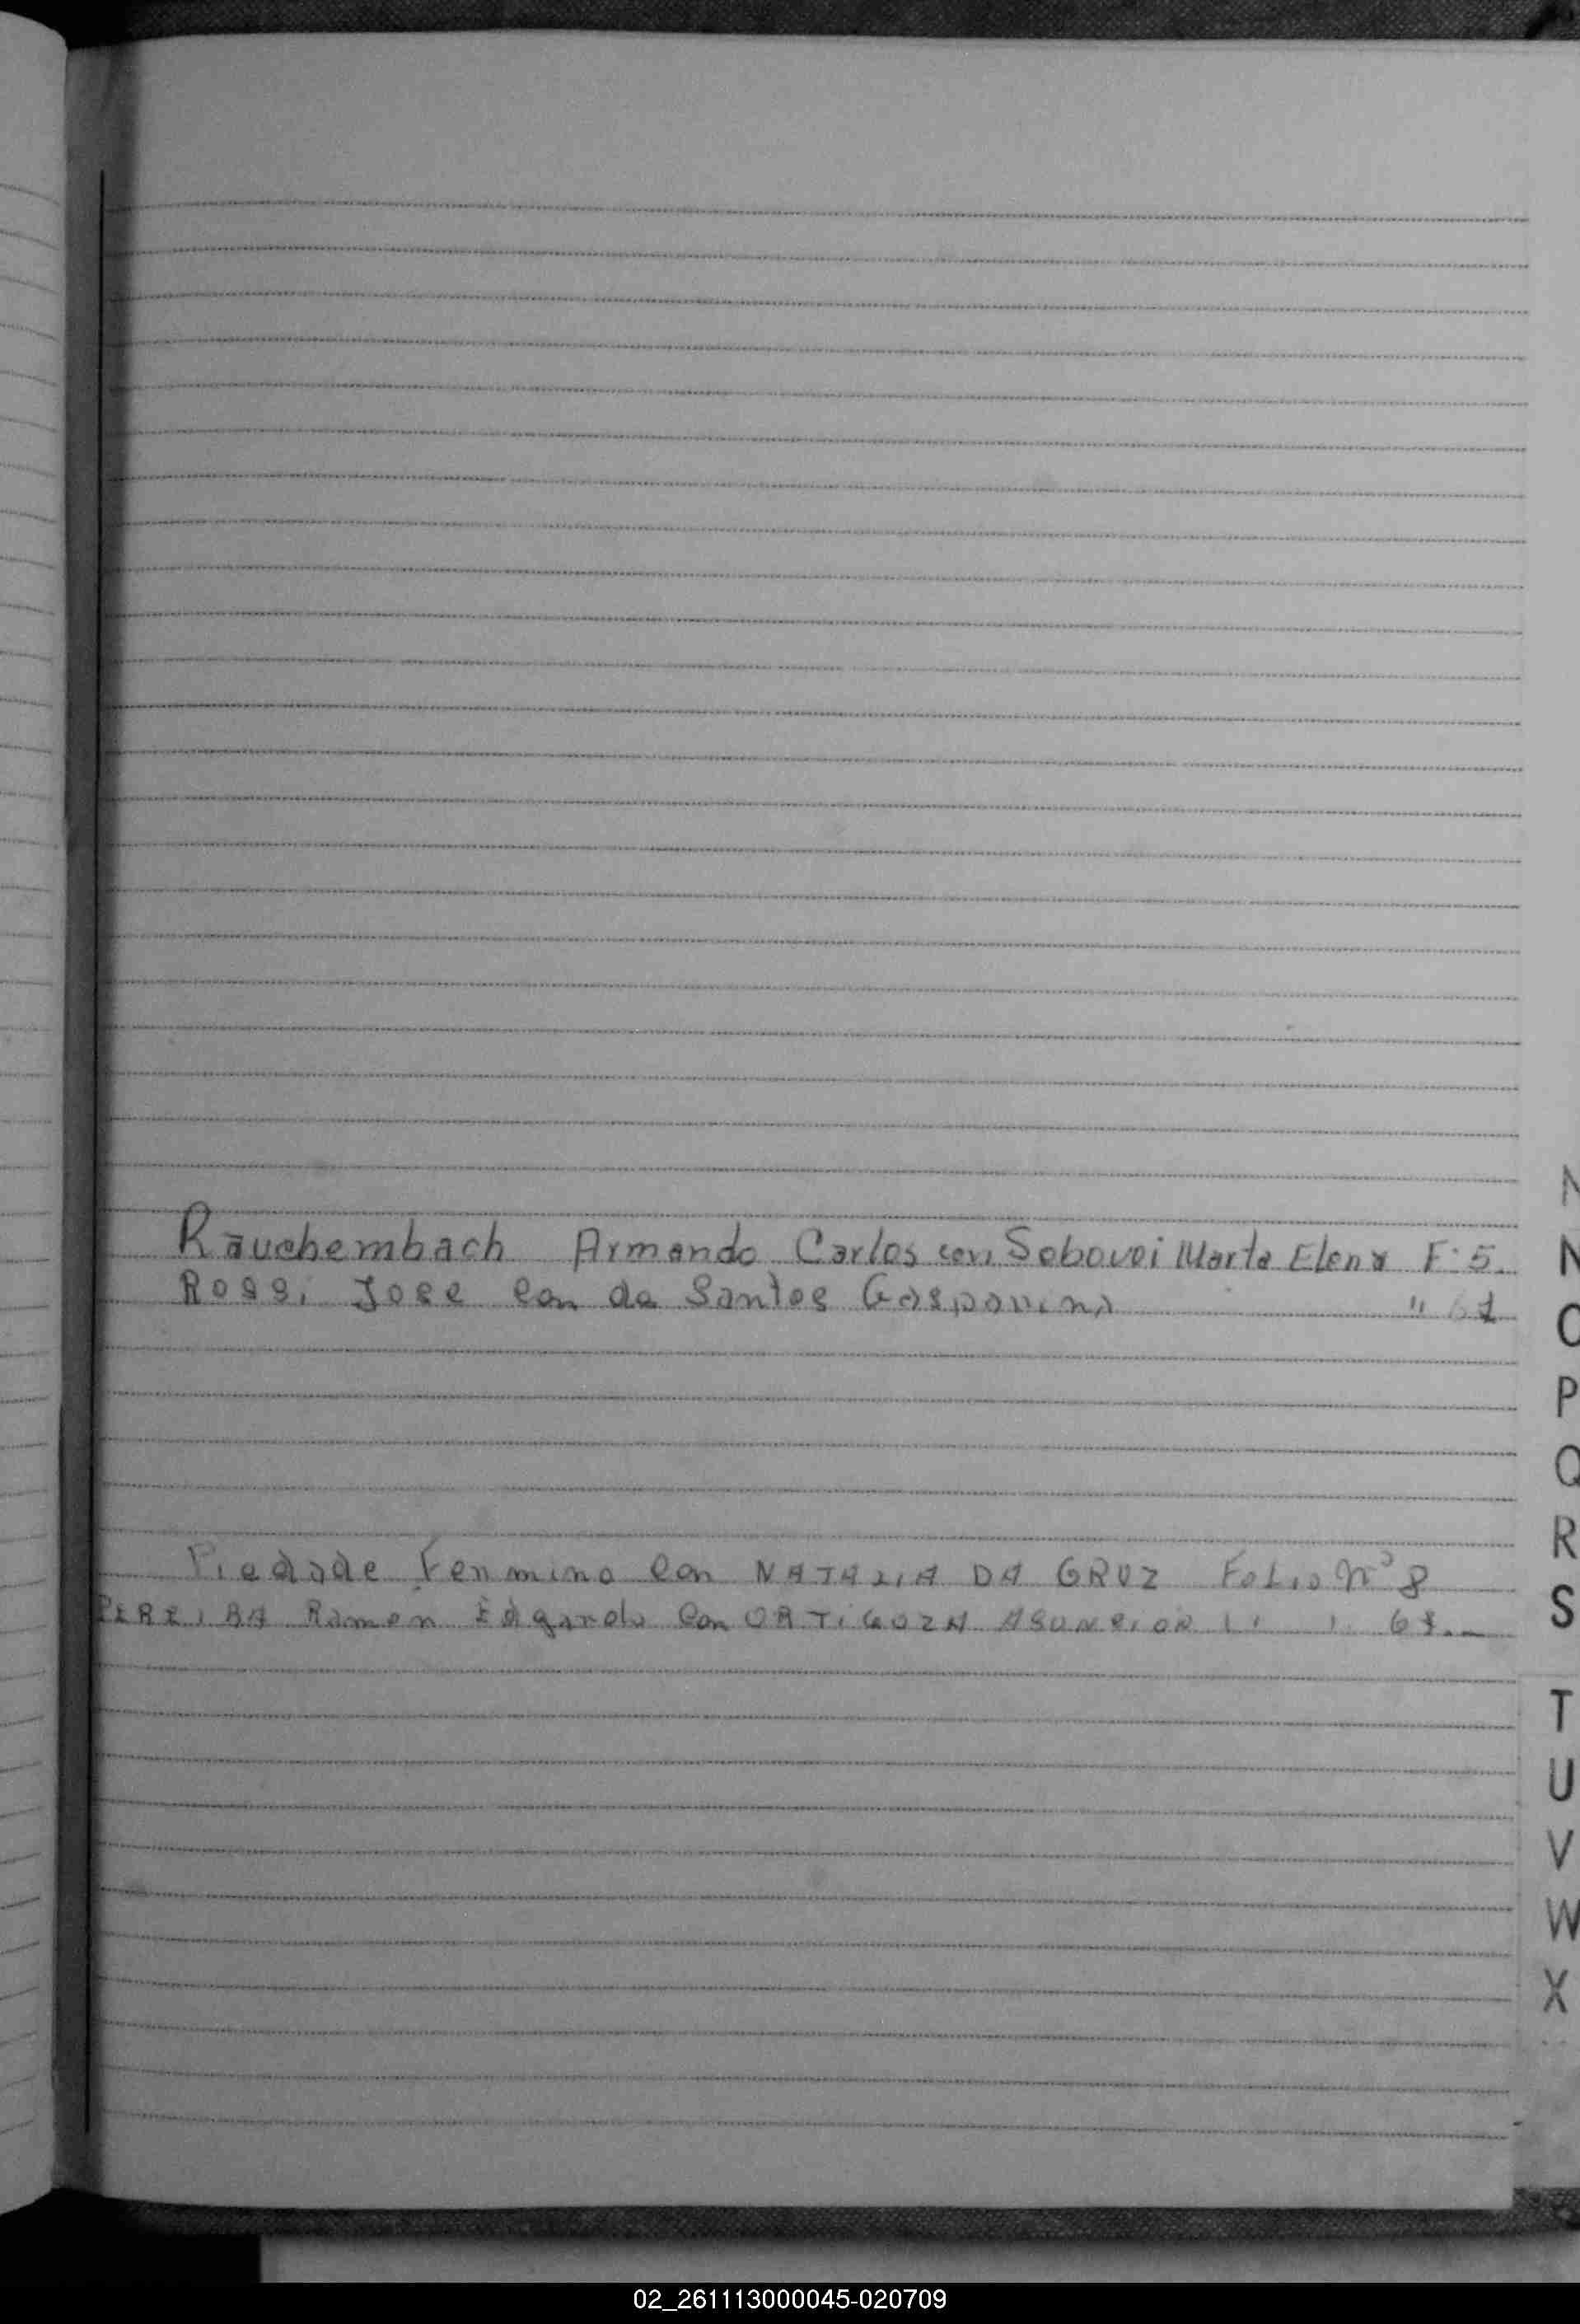 Rauchembach Armando Carlos con Sobovoi Marta Elena F: 5.
Rossi Jose con da Santos Gasparina " 61
Piedade Fermino con NATALIA DA CRUZ Folio Nº 8
PEREIRA Ramon Edgardo con ORTIGOZA ASUNCION " "
N
N
O
P
Q
R
S
T
U
V
W
X
02_261113000045-020709